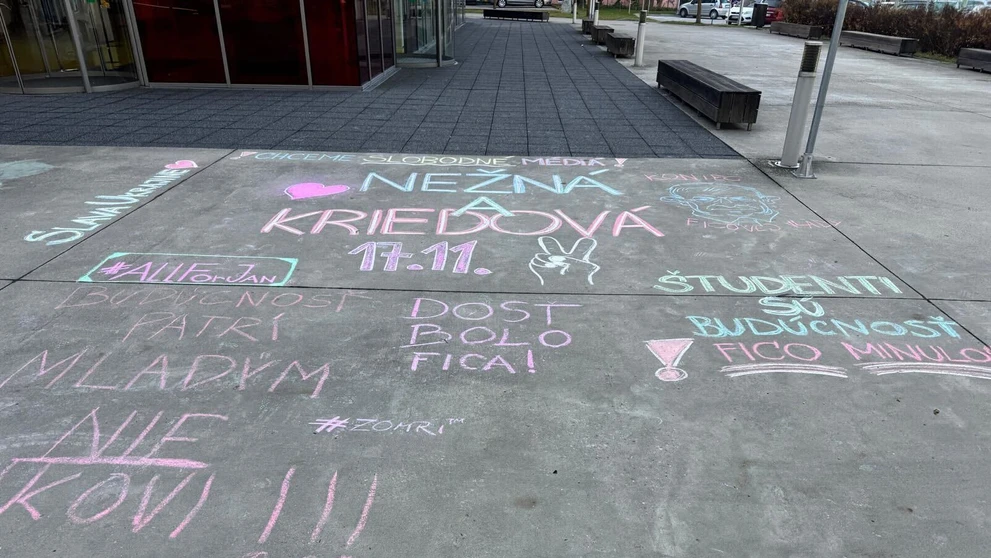 CHCEME SLOBODNÉ MÉDIÁ!
SLAVA UKRAINE
NEŽNÁ
A
KRIEDOVÁ
17.11.
KONIEC
#AllForJan
BUDÚCNOSŤ
PATRÍ
MLADÝM
NIE
KOVI !!!
DOSŤ
BOLO
FICA!
#ZOMRI™
ŠTUDENTI
SÚ
BUDÚCNOSŤ
! FICO MINULOS